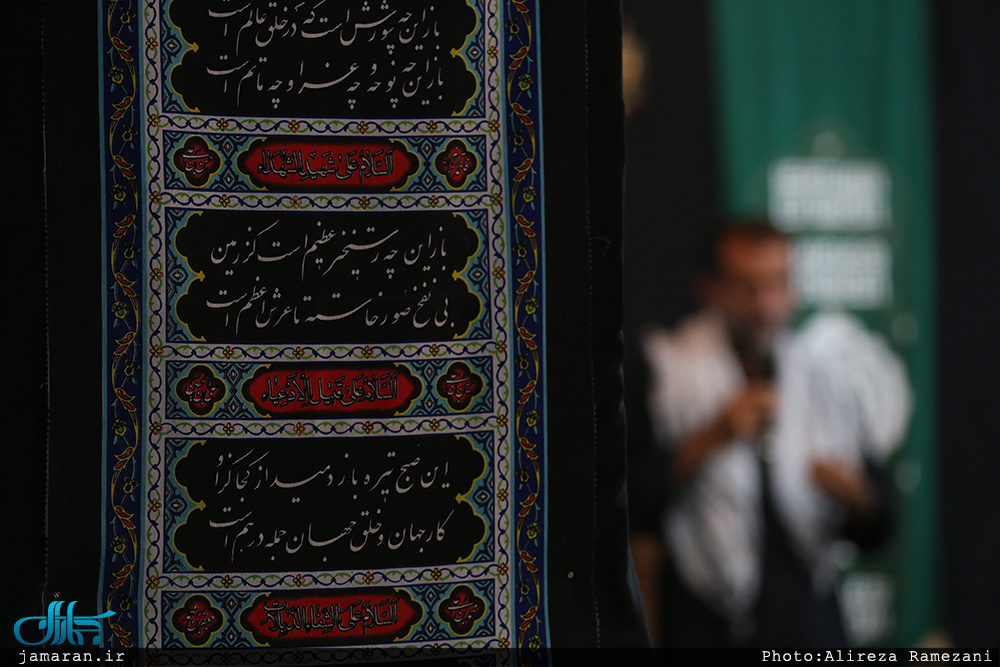 باز این چه شورش است که در خلق عالم است
باز این چه نوحه و چه عزا و چه ماتم است
السلام علی شهید الشهداء
باز این چه رستخیز عظیم است کز زمین
بی نفخ صور خاسته تا عرش اعظم است
السلام علی قتیل الادعیاء
این صبح تیره باز دمید از کجا کزو
کار جهان و خلق جهان جمله در هم است
السلام علی الشفاه الذبلات
جماران
jamaran.ir
Photo:Alireza Ramezani